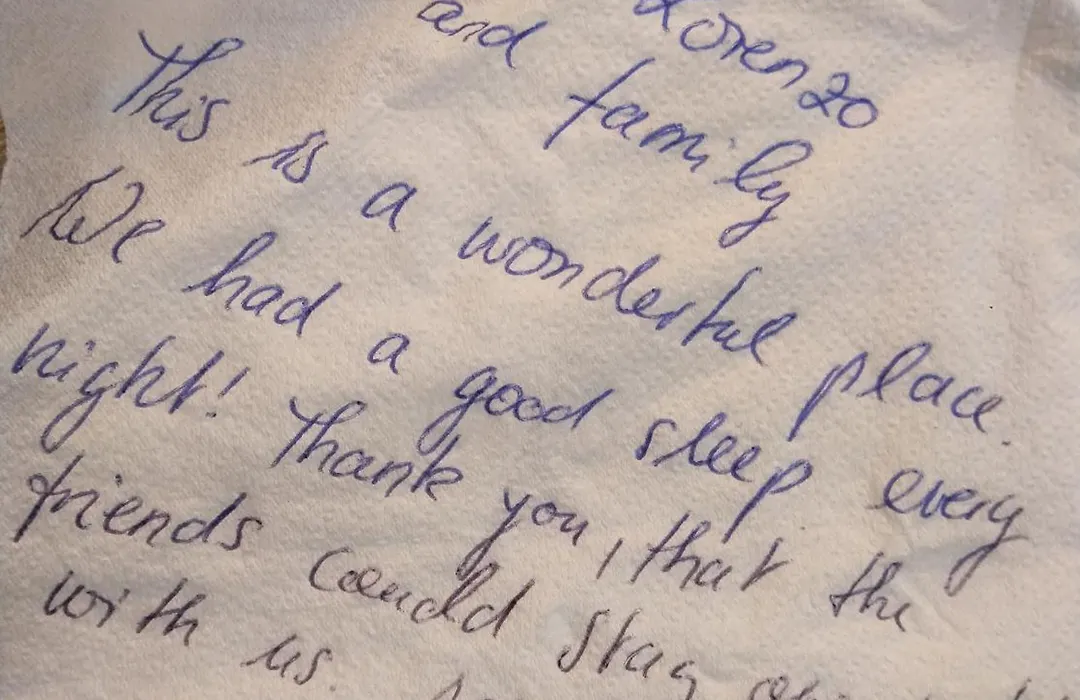 Lorenzo
and family
This is a wonderful place.
We had a good sleep every
night! Thank you, that the
friends could stay
with us.